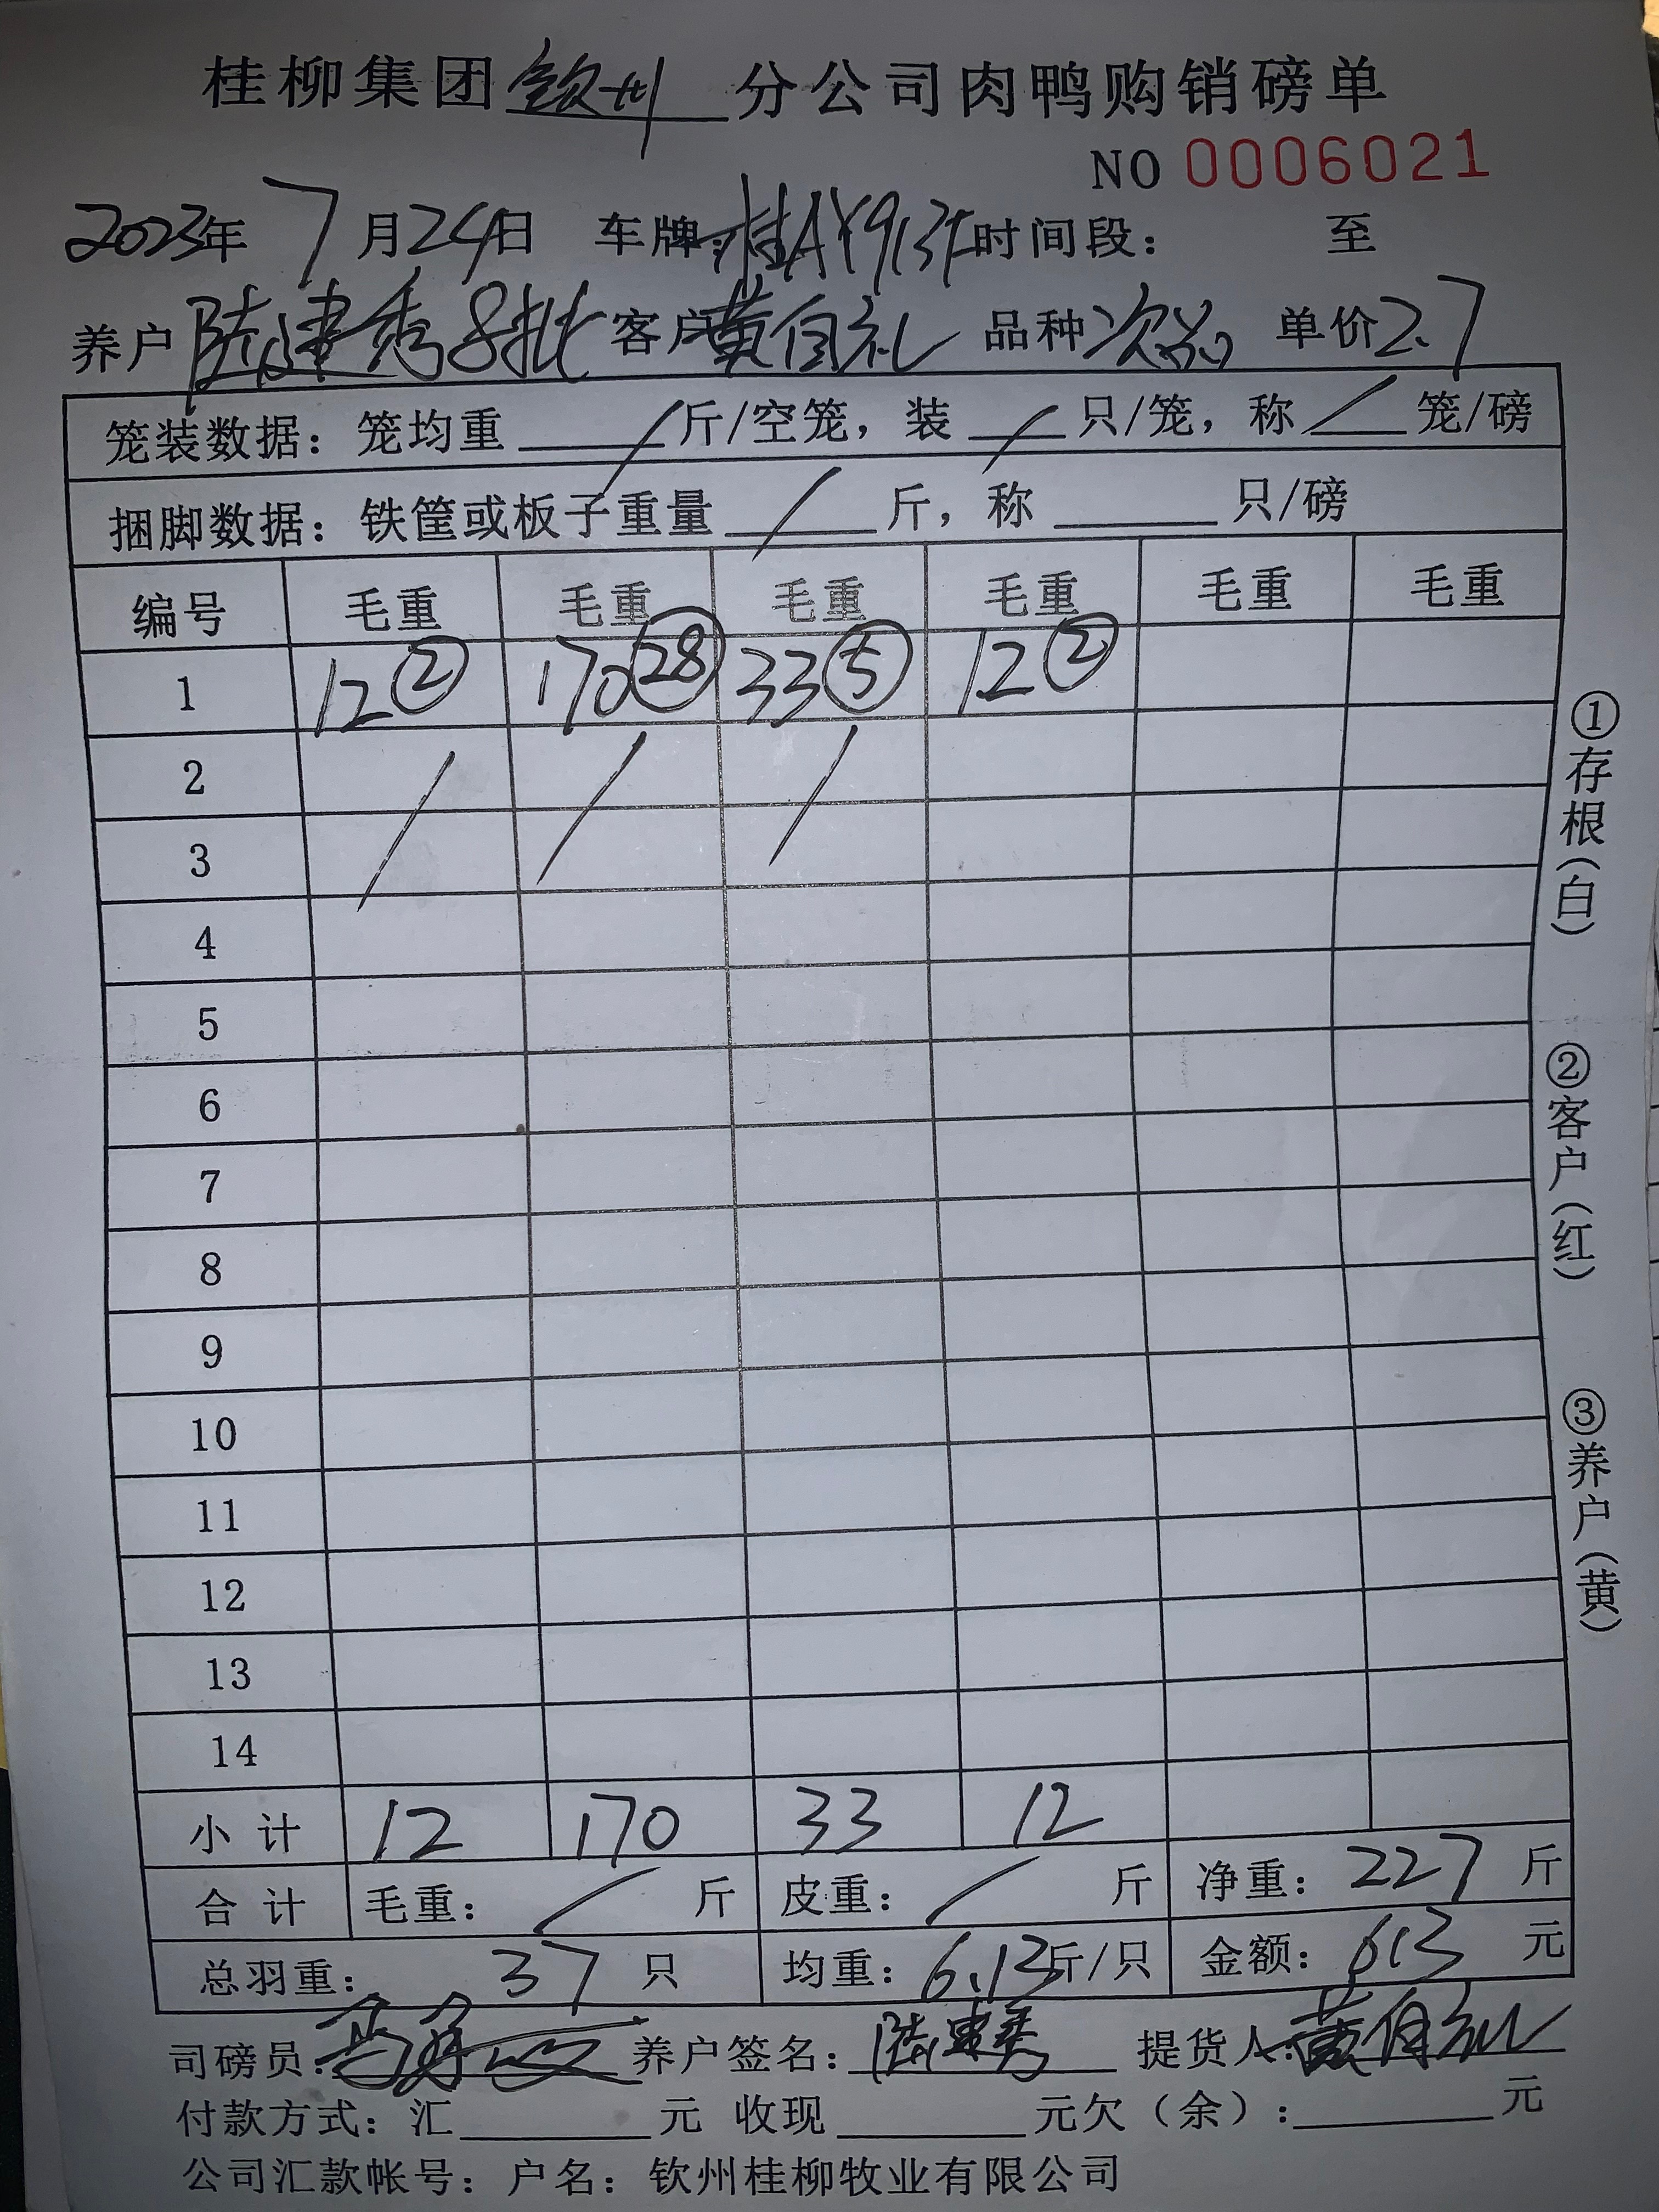 桂柳集团钦州分公司肉鸭购销磅单
NO 0006021
2023年7月24日 车牌:桂AY913 时间段: 至
养户 陆建秀8批 客户 黄自礼 品种 次品 单价 2.7
笼装数据: 笼均重 / 斤/空笼, 装 / 只/笼, 称 / 笼/磅
捆脚数据: 铁筐或板子重量 / 斤, 称 只/磅
编号 毛重 毛重 毛重 毛重 毛重 毛重
1 12② 170㉘ 33⑤ 12②
2 / / /
3
4
5
6
7
8
9
10
11
12
13
14
小计 12 170 33 12
合计 毛重: / 斤 皮重: / 斤 净重: 227 斤
总羽重: 37 只 均重: 6.13斤/只 金额: 613 元
司磅员: 养户签名: 陆建秀 提货人: 黄自礼
付款方式: 汇 元 收现 元欠(余): 元
公司汇款帐号: 户名: 钦州桂柳牧业有限公司
①存根(白)
②客户(红)
③养户(黄)